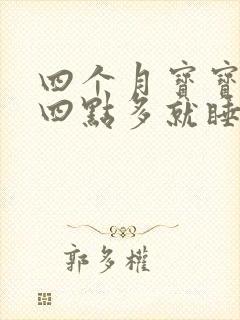 四个月寶寶
四點多就睡
郭多權